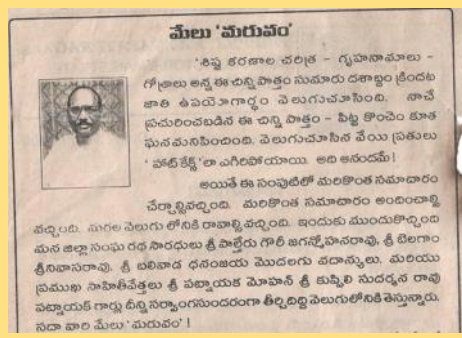 మేలు 'మరువం'
'శిష్ట కరణాల చరిత్ర - గృహనామాలు -
గోత్రాలు అన్న ఈ చిన్ని పొత్తం సుమారు దశాబ్దం క్రిందట
జాతి ఉపయోగార్థం వెలుగుచూసింది. నాచే
ప్రచురించబడిన ఈ చిన్ని పొత్తం - పిట్ట కొంచెం కూత
ఘనమనిపించింది. వెలుగుచూసిన వేయి ప్రతులు
'హాట్ కేక్స్' లా ఎగిరిపోయాయి. అది ఆనందమే!
అయితే ఈ సంపుటిలో మరికొంత సమాచారం
చేర్చాల్సివచ్చింది. మరికొంత సమాచారం అందించాల్సి
వచ్చింది. వెలుగు లోనికి రావాల్సి వచ్చింది. ఇందుకు ముందుకొచ్చింది
మన జిల్లా సంఘ రథ సారధులు శ్రీ పాల్తేరు గౌరీ జగన్మోహనరావు, శ్రీ బెలగాం
శ్రీనివాసరావు, శ్రీ బలివాడ ధనంజయ మొదలగు వదాన్యులు, మరియు
ప్రముఖ సాహితీవేత్తలు శ్రీ పట్నాయక మోహన్ శ్రీ కుప్పిలి సుదర్శన రావు
పట్నాయక్ గార్లు దీన్ని సర్వాంగసుందరంగా తీర్చిదిద్ది వెలుగులోనికి తెస్తున్నారు.
సదా వారి మేలు 'మరువం' !